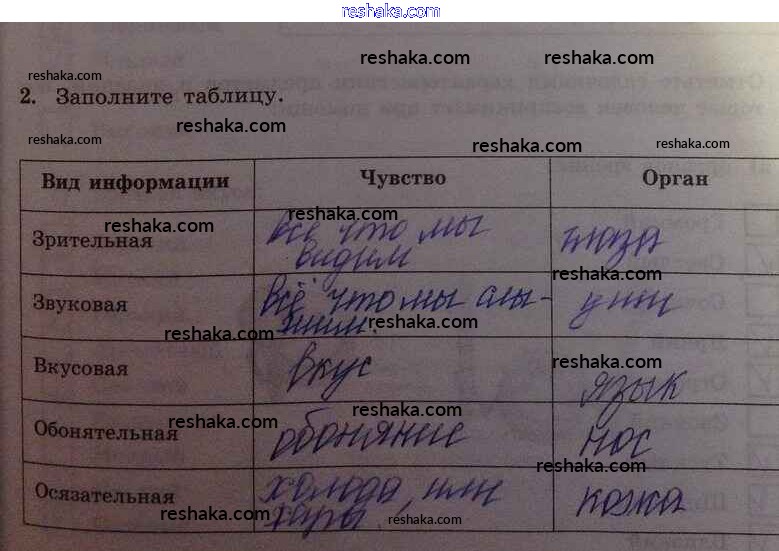 reshaka.com
reshaka.com reshaka.com
reshaka.com
2. Заполните таблицу.
reshaka.com
reshaka.com reshaka.com
Вид информации Чувство Орган
reshaka.com reshaka.com
Зрительная всё что мы видим глаза
reshaka.com reshaka.com
Звуковая всё что мы слы-
шим. уши
reshaka.com reshaka.com
Вкусовая вкус язык
reshaka.com
reshaka.com reshaka.com
Обонятельная обоняние нос
reshaka.com
Осязательная холода, или кожа
reshaka.com reshaka.com